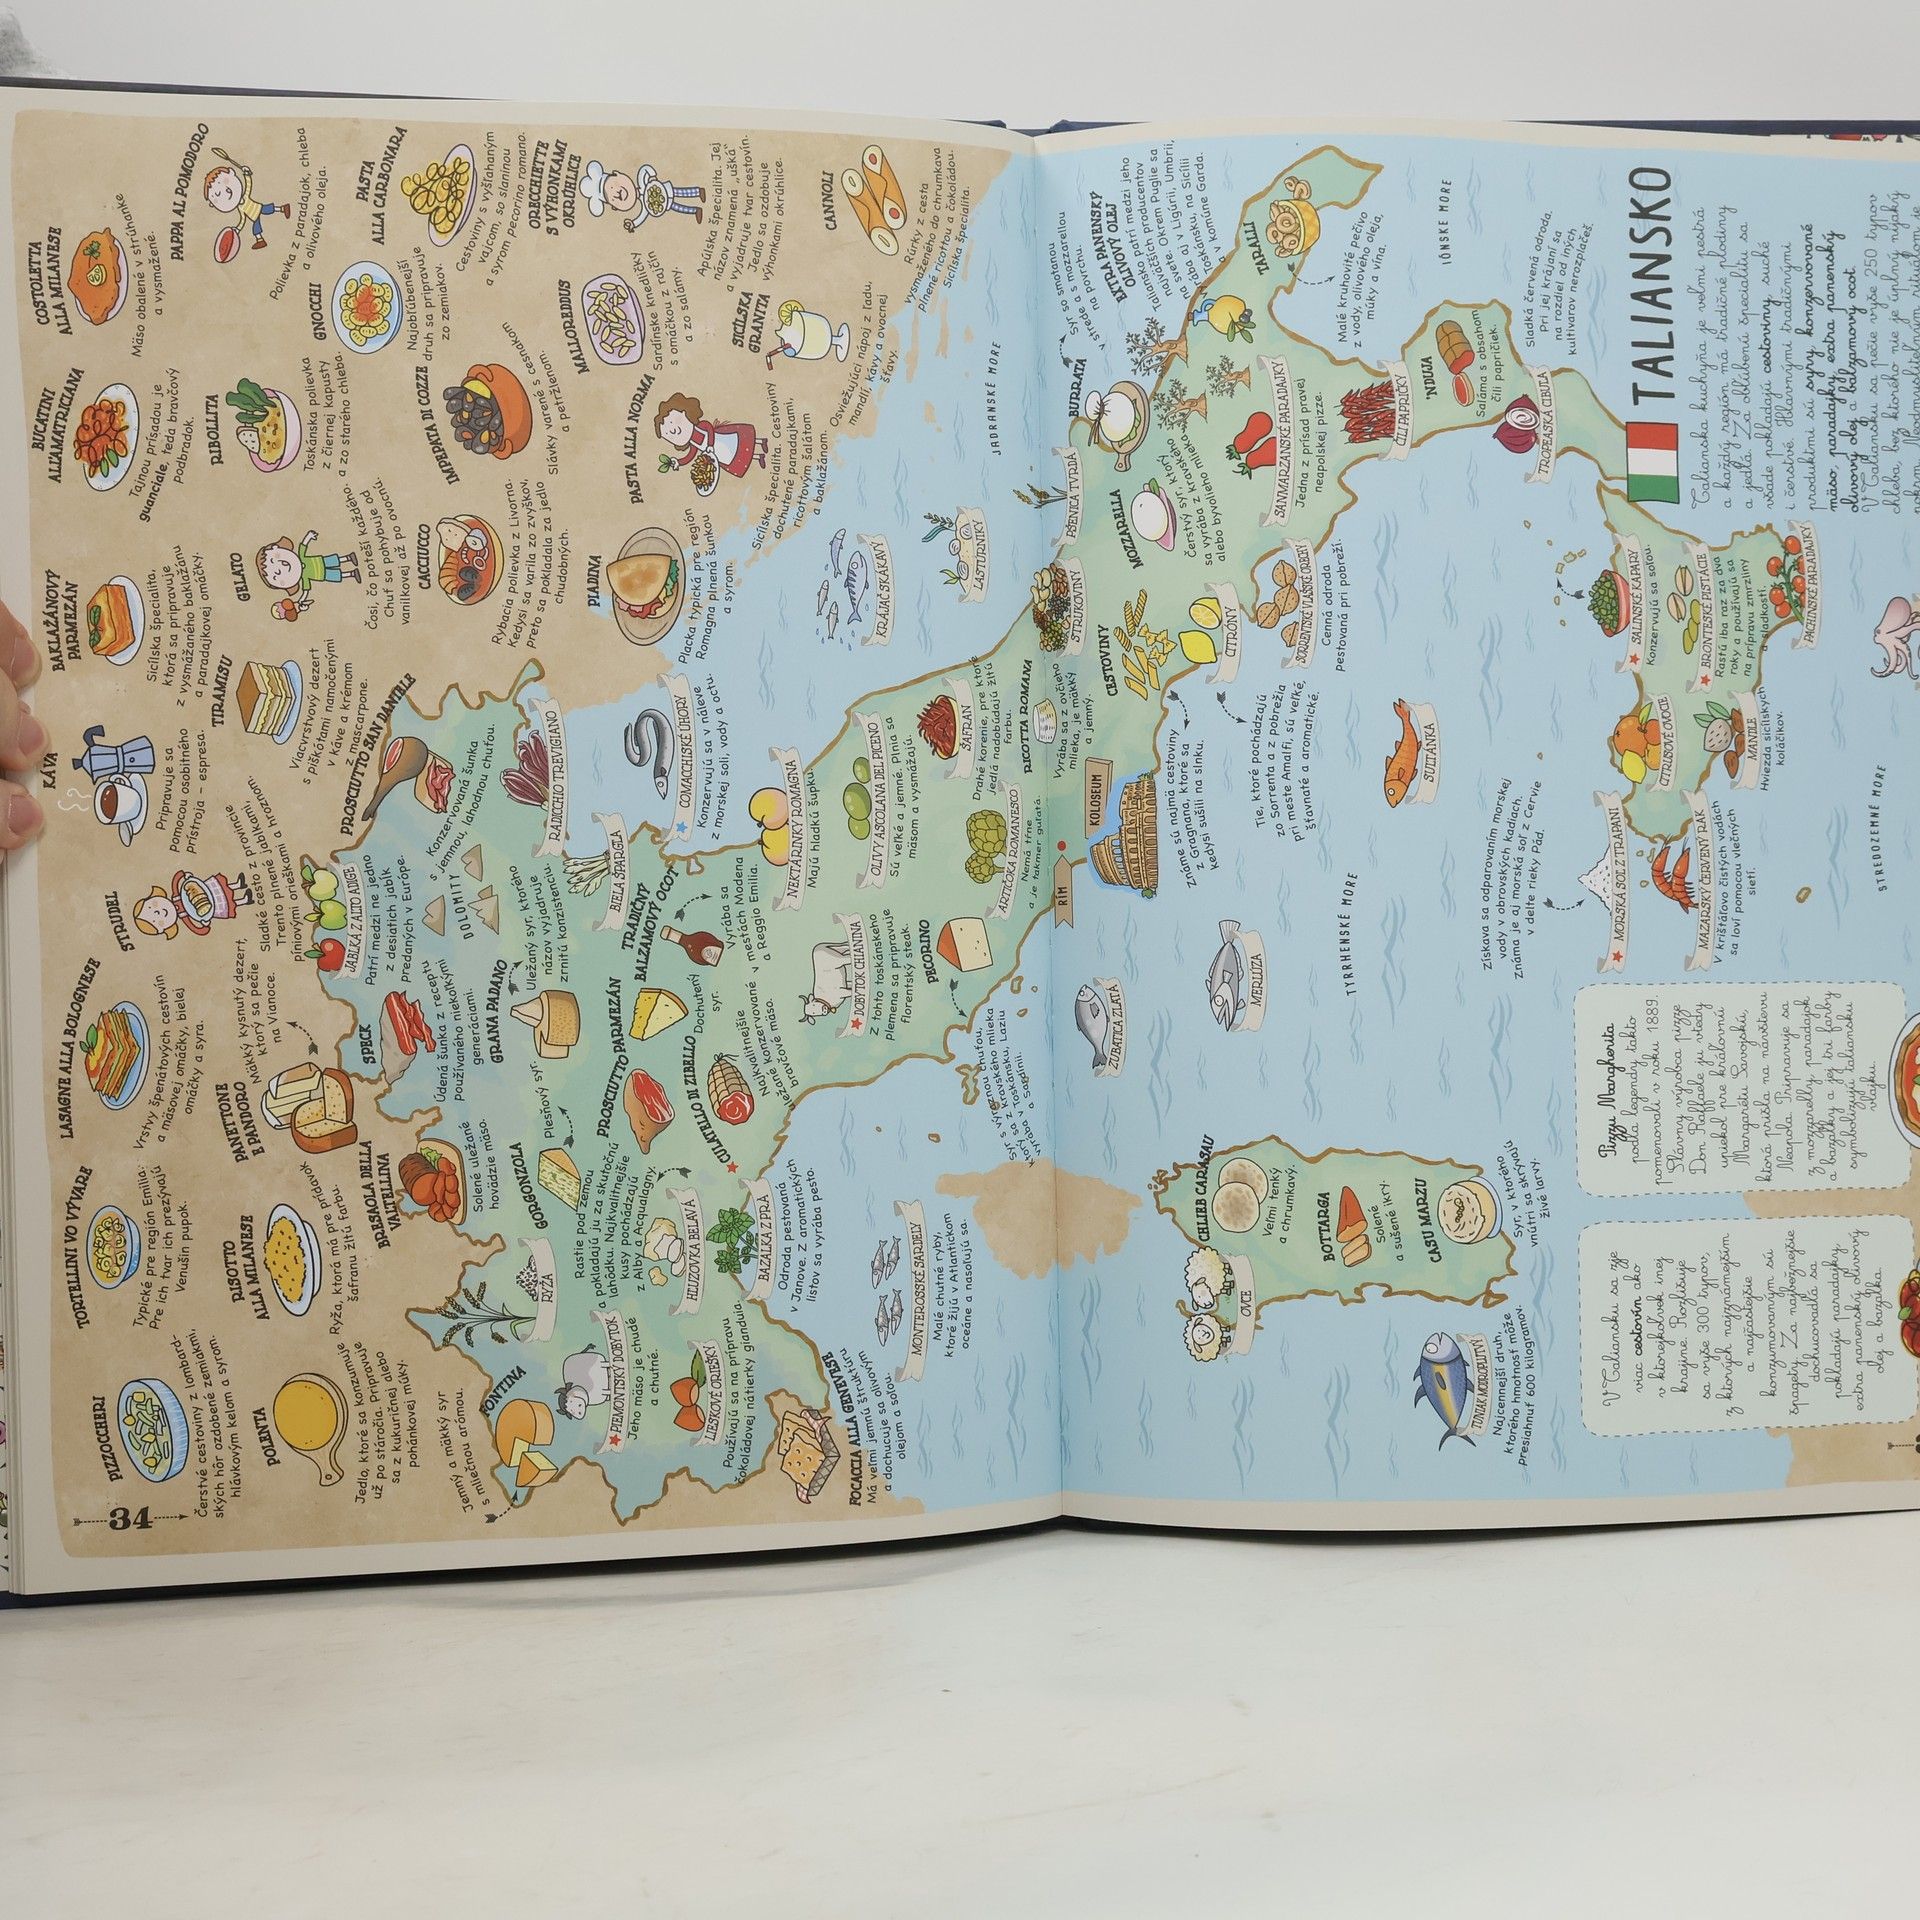 34
PIZZOCCHERI
Čerstvé cestoviny z lombard-
ských hôr ozdobené zemiakmi,
hlávkovým kelom a syrom.
TORTELLINI VO VÝVARE
Typické pre región Emilia.
Pre ich tvar ich prezývajú
Venušin pupok.
LASAGNE ALLA BOLOGNESE
Vrstvy špenátových cestovín
a mäsovej omáčky, bielej
omáčky a syra.
STRUDEL
Sladké cesto z provincie
Trento plnené jablkami,
píniovými orieškami a hrozno
KÁVA
Pripravuje sa
pomocou osobitného
prístroja – espresa.
BAKLAŽÁNOVÝ
PARMEZÁN
Sicílska špecialita,
ktorá sa pripravuje
z vysmážaného baklažánu
a paradajkovej omáčky.
BUCATINI
ALL'AMATRICIANA
Tajnou prísadou je
guanciale, teda bravčový
podbradok.
COSTOLETTA
ALLA MILANESE
Mäso obalené v strúhanke
a vysmažené.
POLENTA
Jedlo, ktoré sa konzumuje
už po stáročia. Pripravuje
sa z kukuričnej alebo
pohánkovej múky.
RISOTTO
ALLA MILANESE
Ryža, ktorá má pre prídavok
šafranu žltú farbu.
PANETTONE
E PANDORO
Mäkký kysnutý dezert,
ktorý sa pečie
na Vianoce.
TIRAMISU
Viacvrstvový dezert
s piškótami namočenými
v káve a krémom
z mascarpone.
GELATO
Čosi, čo poteší každého.
Chuť sa pohybuje od
vanilkovej až po ovocnú.
RIBOLLITA
Toskánska polievka
z čiernej kapusty
a zo starého chleba.
PAPPA AL POMODORO
Polievka z paradajok, chleba
a olivového oleja.
GNOCCHI
Najobľúbenejší
druh sa pripravuje
zo zemiakov.
PASTA
ALLA CARBONARA
Cestoviny s vyšľahaným
vajcom, so slaninou
a syrom pecorino romano.
CACCIUCCO
Rybacia polievka z Livorna.
Kedysi sa varila zo zvyškov,
preto sa pokladala za jedlo
chudobných.
IMPEPATA DI COZZE
Slávky varené s cesnakom
a petržlenom.
MALLOREDDUS
Sardínske knedličky
s omáčkou z rajčín
a zo salámy.
ORECCHIETTE
S VÝHONKAMI
OKRÚHLICE
Apúlska špecialita. Jej
názov znamená „uška“
a vyjadruje tvar cestovín.
Jedlo sa ozdobuje
výhonkami okrúhlice.
PIADINA
Placka typická pre región
Romagna plnená šunkou
a syrom.
PASTA ALLA NORMA
Sicílska špecialita. Cestoviny
dochutené paradajkami,
ricottovým šalátom
a baklažánom.
SICÍLSKA
GRANITA
Osviežujúci nápoj z ľadu,
mandlí, kávy a ovocnej
šťavy.
CANNOLI
Rúrky z cesta
vysmaženého do chrumkava
plnené ricottou a čokoládou.
Sicílska špecialita.
FONTINA
Jemný a mäkký syr
s mliečnou arómou.
BRESAOLA DELLA
VALTELLINA
Solené uležané
hovädzie mäso.
SPECK
Údená šunka z receptu
používaného niekoľkými
generáciami.
JABLKÁ Z ALTO ADIGE
Patrí medzi ne jedno
z desiatich jabĺk
predaných v Európe.
PROSCIUTTO SAN DANIELE
Konzervovaná šunka
s jemnou, lahodnou chuťou.
DOLOMITY
RADICCHIO TREVIGIANO
BIELA ŠPARGĽA
RYŽA
GORGONZOLA
Plesňový syr.
GRANA PADANO
Uležaný syr, ktorého
názov vyjadruje
zrnitú konzistenciu.
TRADIČNÝ
BALZAMOVÝ OCOT
Vyrába sa
v mestách Modena
a Reggio Emilia.
PIEMONTSKÝ DOBYTOK
Jeho mäso je chudé
a chutné.
HĽUZOVKA BELAVÁ
Rastie pod zemou
a pokladajú ju za skutočnú
lahôdku. Najkvalitnejšie
kusy pochádzajú
z Alby a Acqualagny.
PROSCIUTTO
PARMEZÁN
Dochutený
syr.
CULATELLO DI ZIBELLO
Najkvalitnejšie
konzervované
uležané
bravčové mäso.
LIESKOVÉ ORIEŠKY
Používajú sa na prípravu
čokoládovej nátierky gianduia.
BAZALKA Z PRÀ
Odroda pestovaná
v Janove. Z aromatických
listov sa vyrába pesto.
FOCACCIA ALLA GENOVESE
Má veľmi jemnú štruktúru
a dochucuje sa olivovým
olejom a soľou.
MONTEROSSKÉ SARDELY
Malé chutné ryby,
ktoré žijú v Atlantickom
oceáne a nasoľujú sa.
COMACCHIJSKÉ ÚHORY
Konzervujú sa v náleve
z morskej soli, vody a octu.
NEKTÁRINKY ROMAGNA
Majú hladkú šupku.
DOBYTOK CHIANINA
Z tohto toskánskeho
plemena sa pripravuje
florentský steak.
OLIVY ASCOLANA DEL PICENO
Sú veľké a jemné. Plnia sa
mäsom a vysmážajú.
ŠAFRAN
Drahé korenie, pre ktoré
jedlá nadobúdajú žltú
farbu.
ARTIČOKA ROMANESCO
Nemá tŕne
a je takmer guľatá.
PECORINO
Syr s výraznou chuťou,
ktorý sa z kravského mlieka
vyrába v Toskánsku, Laziu
a Sardínii.
RICOTTA ROMANA
Vyrába sa z ovčieho
mlieka, je mäkký
a jemný.
KRÁĽAČ SKÁKAVÝ
LASTÚRNIKY
JADRANSKÉ MORE
RÍM
KOLOSEUM
STRUKOVINY
PŠENICA TVRDÁ
BURRATA
Syr so smotanou
v strede a s mozzarellou
na povrchu.
EXTRA PANENSKÝ
OLIVOVÝ OLEJ
Taliansko patrí medzi jeho
najväčších producentov
na svete. Okrem Puglie sa
vyrába aj v Ligúrii, Umbrii,
Toskánsku, na Sicílii
a v komúne Garda.
TARALLI
Malé kruhovité pečivo
z vody, olivového oleja,
múky a vína.
MOZZARELLA
Čerstvý syr, ktorý
sa vyrába z kravského
alebo byvolieho mlieka.
CESTOVINY
Známe sú najmä cestoviny
z Gragnana, ktoré sa
kedysi sušili na slnku.
CITRÓNY
Tie, ktoré pochádzajú
zo Sorrenta a z pobrežia
pri meste Amalfi, sú veľké,
šťavnaté a aromatické.
SANMARZANSKÉ PARADAJKY
Jedna z prísad pravej
neapolskej pizze.
SORRENTSKÉ VLAŠSKÉ ORECHY
Cenná odroda
pestovaná pri pobreží.
ČILI PAPRIČKY
'NDUJA
Saláma s obsahom
čili papričiek.
TROPEASKÁ CIBUĽA
Sladká červená odroda.
Pri jej krájaní sa
na rozdiel od iných
kultivarov nerozplačeš.
IÓNSKE MORE
ZUBATICA ZLATÁ
MERLÚZA
SULTÁNKA
TYRRHENSKÉ MORE
CHLIEB CARASAU
Veľmi tenký
a chrumkavý.
OVCE
BOTTARGA
Solené
a sušené ikry.
CASU MARZU
Syr, v ktorého
vnútri sa skrývajú
živé larvy.
TUNIAK MODROPLUTVÝ
Najcennejší druh,
ktorého hmotnosť môže
presiahnuť 600 kilogramov.
MORSKÁ SOĽ Z TRAPANI
Získava sa odparovaním morskej
vody v obrovských kadiach.
Známa je aj morská soľ z Cervie
v delte rieky Pád.
MAZARSKÝ ČERVENÝ RAK
V krištáľovo čistých vodách
sa loví pomocou vlečných
sietí.
CITRUSOVÉ OVOCIE
MANDLE
Hviezda sicílskych
koláčikov.
SALINSKÉ KAPARY
Konzervujú sa soľou.
BRONTESKÉ PISTÁCIE
Rastú iba raz za dva
roky a používajú sa
na prípravu zmrzliny
a sladkostí.
PACHINSKÉ PARADAJKY
STREDOZEMNÉ MORE
TALIANSKO
Talianska kuchyňa je veľmi pestrá
a každý región má tradičné plodiny
a jedlá. Za obľúbenú špecialitu sa
všade pokladajú cestoviny, suché
i čerstvé. Hlavnými tradičnými
produktmi sú syry, konzervované
mäso, paradajky, extra panenský
olivový olej a balzamový ocot.
V Taliansku sa pečie vyše 250 typov
chleba, bez ktorého nie je úplný nijaký
Pizza Margherita
podľa legendy takto
pomenovali v roku 1889.
Slávny výrobca pizze
Don Raffaele ju vtedy
upiekol pre kráľovnú
Margarétu Savojskú,
ktorá prišla na návštevu
Neapola. Pripravuje sa
z mozzarelly, paradajok
a bazalky a jej tri farby
symbolizujú taliansku
vlajku.
V Taliansku sa zje
viac cestovín ako
v ktorejkoľvek inej
krajine. Rozlišuje
sa vyše 300 typov,
z ktorých najznámejším
a najčastejšie
konzumovaným sú
špagety. Za najbežnejšie
dochucovadlá sa
pokladajú paradajky,
extra panenský olivový
olej a bazalka.